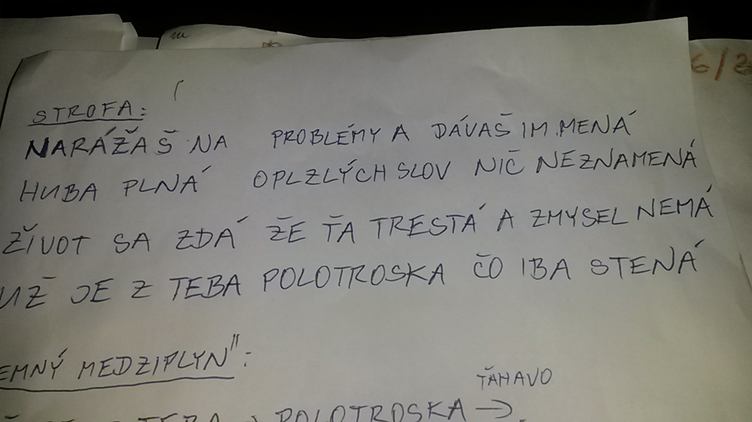 STROFA:
NARÁŽAŠ NA PROBLÉMY A DÁVAŠ IM MENÁ
HUBA PLNÁ OPLZLÝCH SLOV NIČ NEZNAMENÁ
ŽIVOT SA ZDÁ ŽE ŤA TRESTÁ A ZMYSEL NEMÁ
UŽ JE Z TEBA POLOTROSKA ČO IBA STENÁ
EMNÝ MEDZIPLYN":
ŤAHAVO
TEBA POLOTROSKA →
6/2